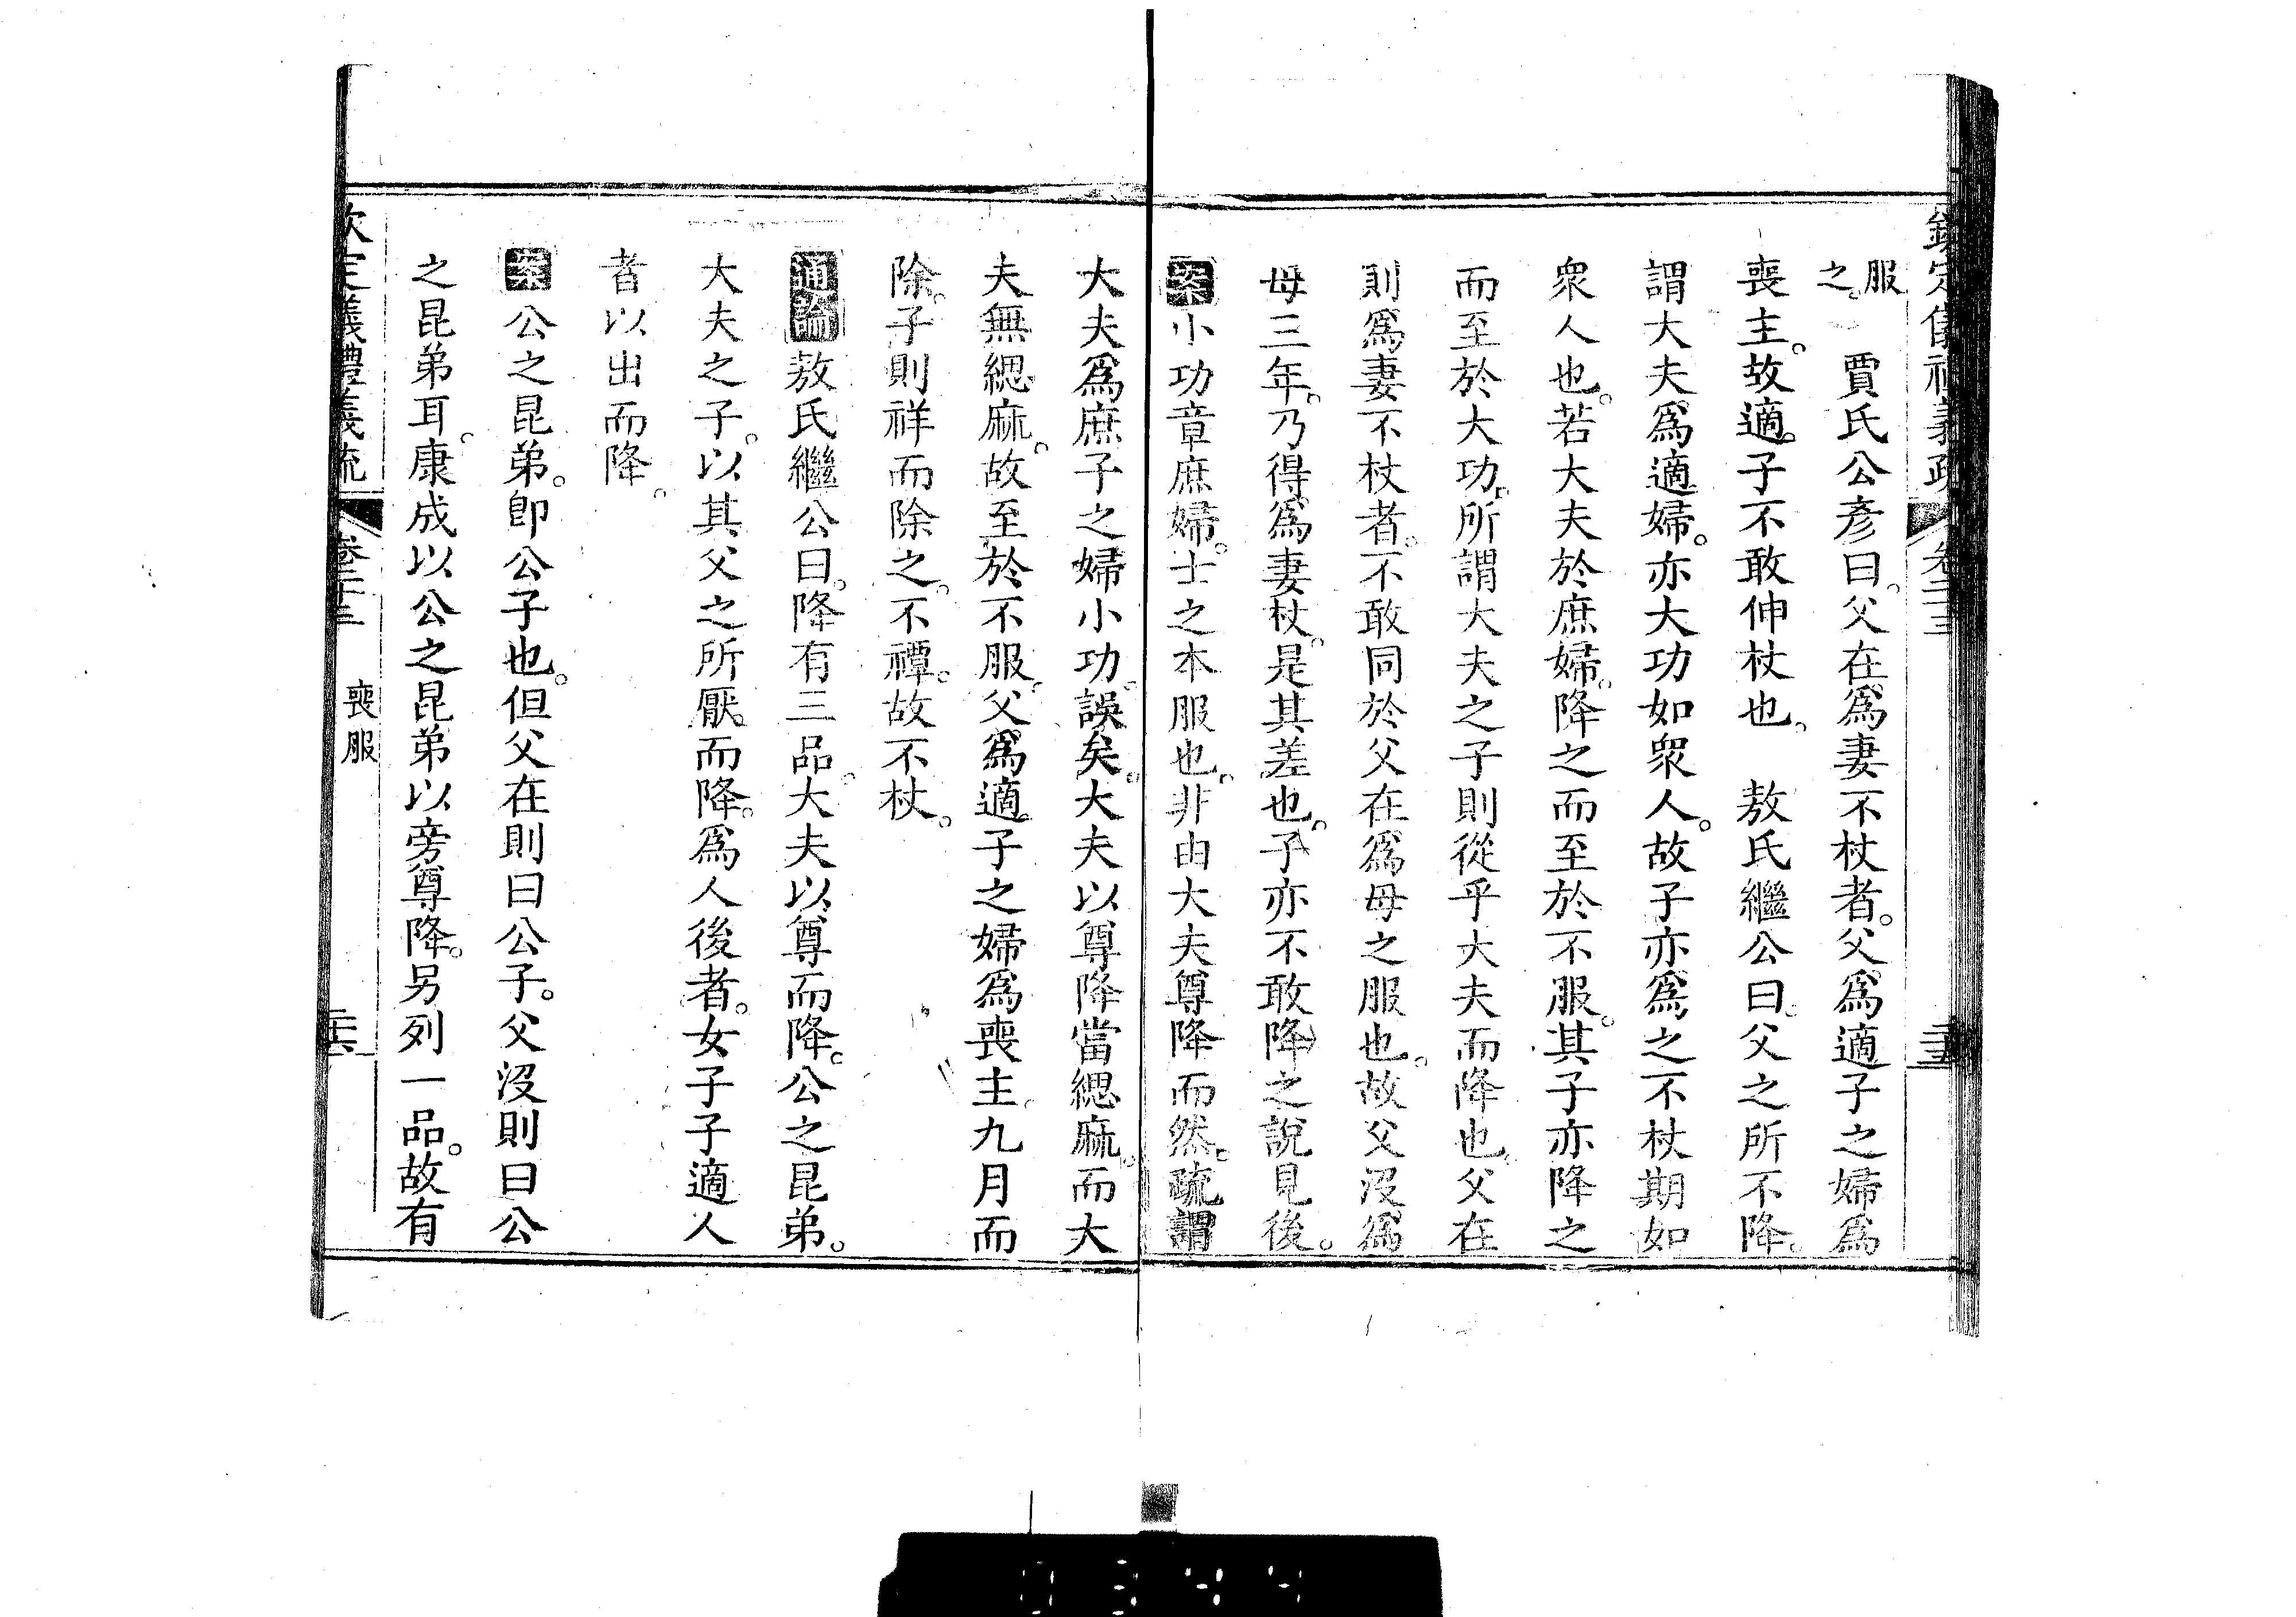 欽定儀禮義疏 卷二十三 二十五
服之。 賈氏公彥曰。父在爲妻不杖者。父爲適子之婦爲
喪主。故適子不敢伸杖也。 敖氏繼公曰。父之所不降。
謂大夫爲適婦。亦大功如衆人。故子亦爲之不杖期如
衆人也。若大夫於庶婦。降之而至於不服。其子亦降之
而至於大功。所謂大夫之子則從乎大夫而降也。父在
則爲妻不杖者。不敢同於父在爲母之服也。故父沒爲
母三年。乃得爲妻杖。是其差也。子亦不敢降之說見後。
案小功章庶婦。士之本服也。非由大夫尊降而然。疏謂
大夫爲庶子之婦小功。誤矣。大夫以尊降當緦麻。而大
夫無緦麻。故至於不服。父爲適子之婦爲喪主。九月而
除。子則祥而除之。不禫。故不杖。
通論敖氏繼公曰。降有三品。大夫以尊而降。公之昆弟。
大夫之子。以其父之所厭而降。爲人後者。女子子適人
者以出而降。
案公之昆弟。卽公子也。但父在則曰公子。父沒則曰公
之昆弟耳。康成以公之昆弟以旁尊降。另列一品。故有
欽定儀禮義疏 卷二十三 喪服 二十六
0344